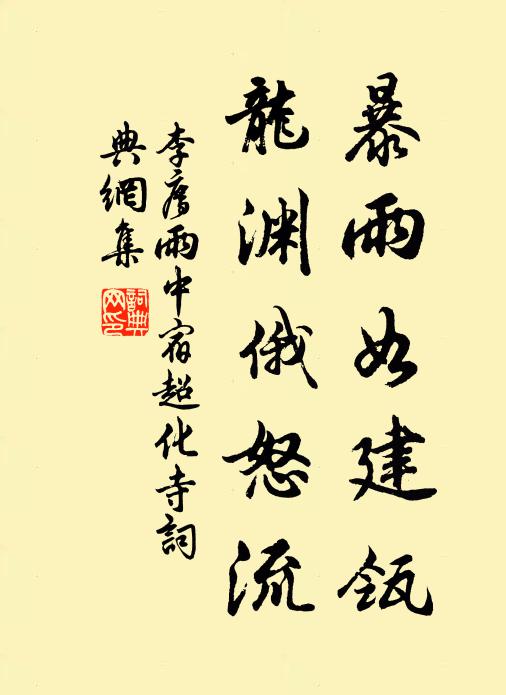 暴雨如建瓴
龍渊俄怒流
李廌雨中宿超化寺詞
典網集
詞典
网印